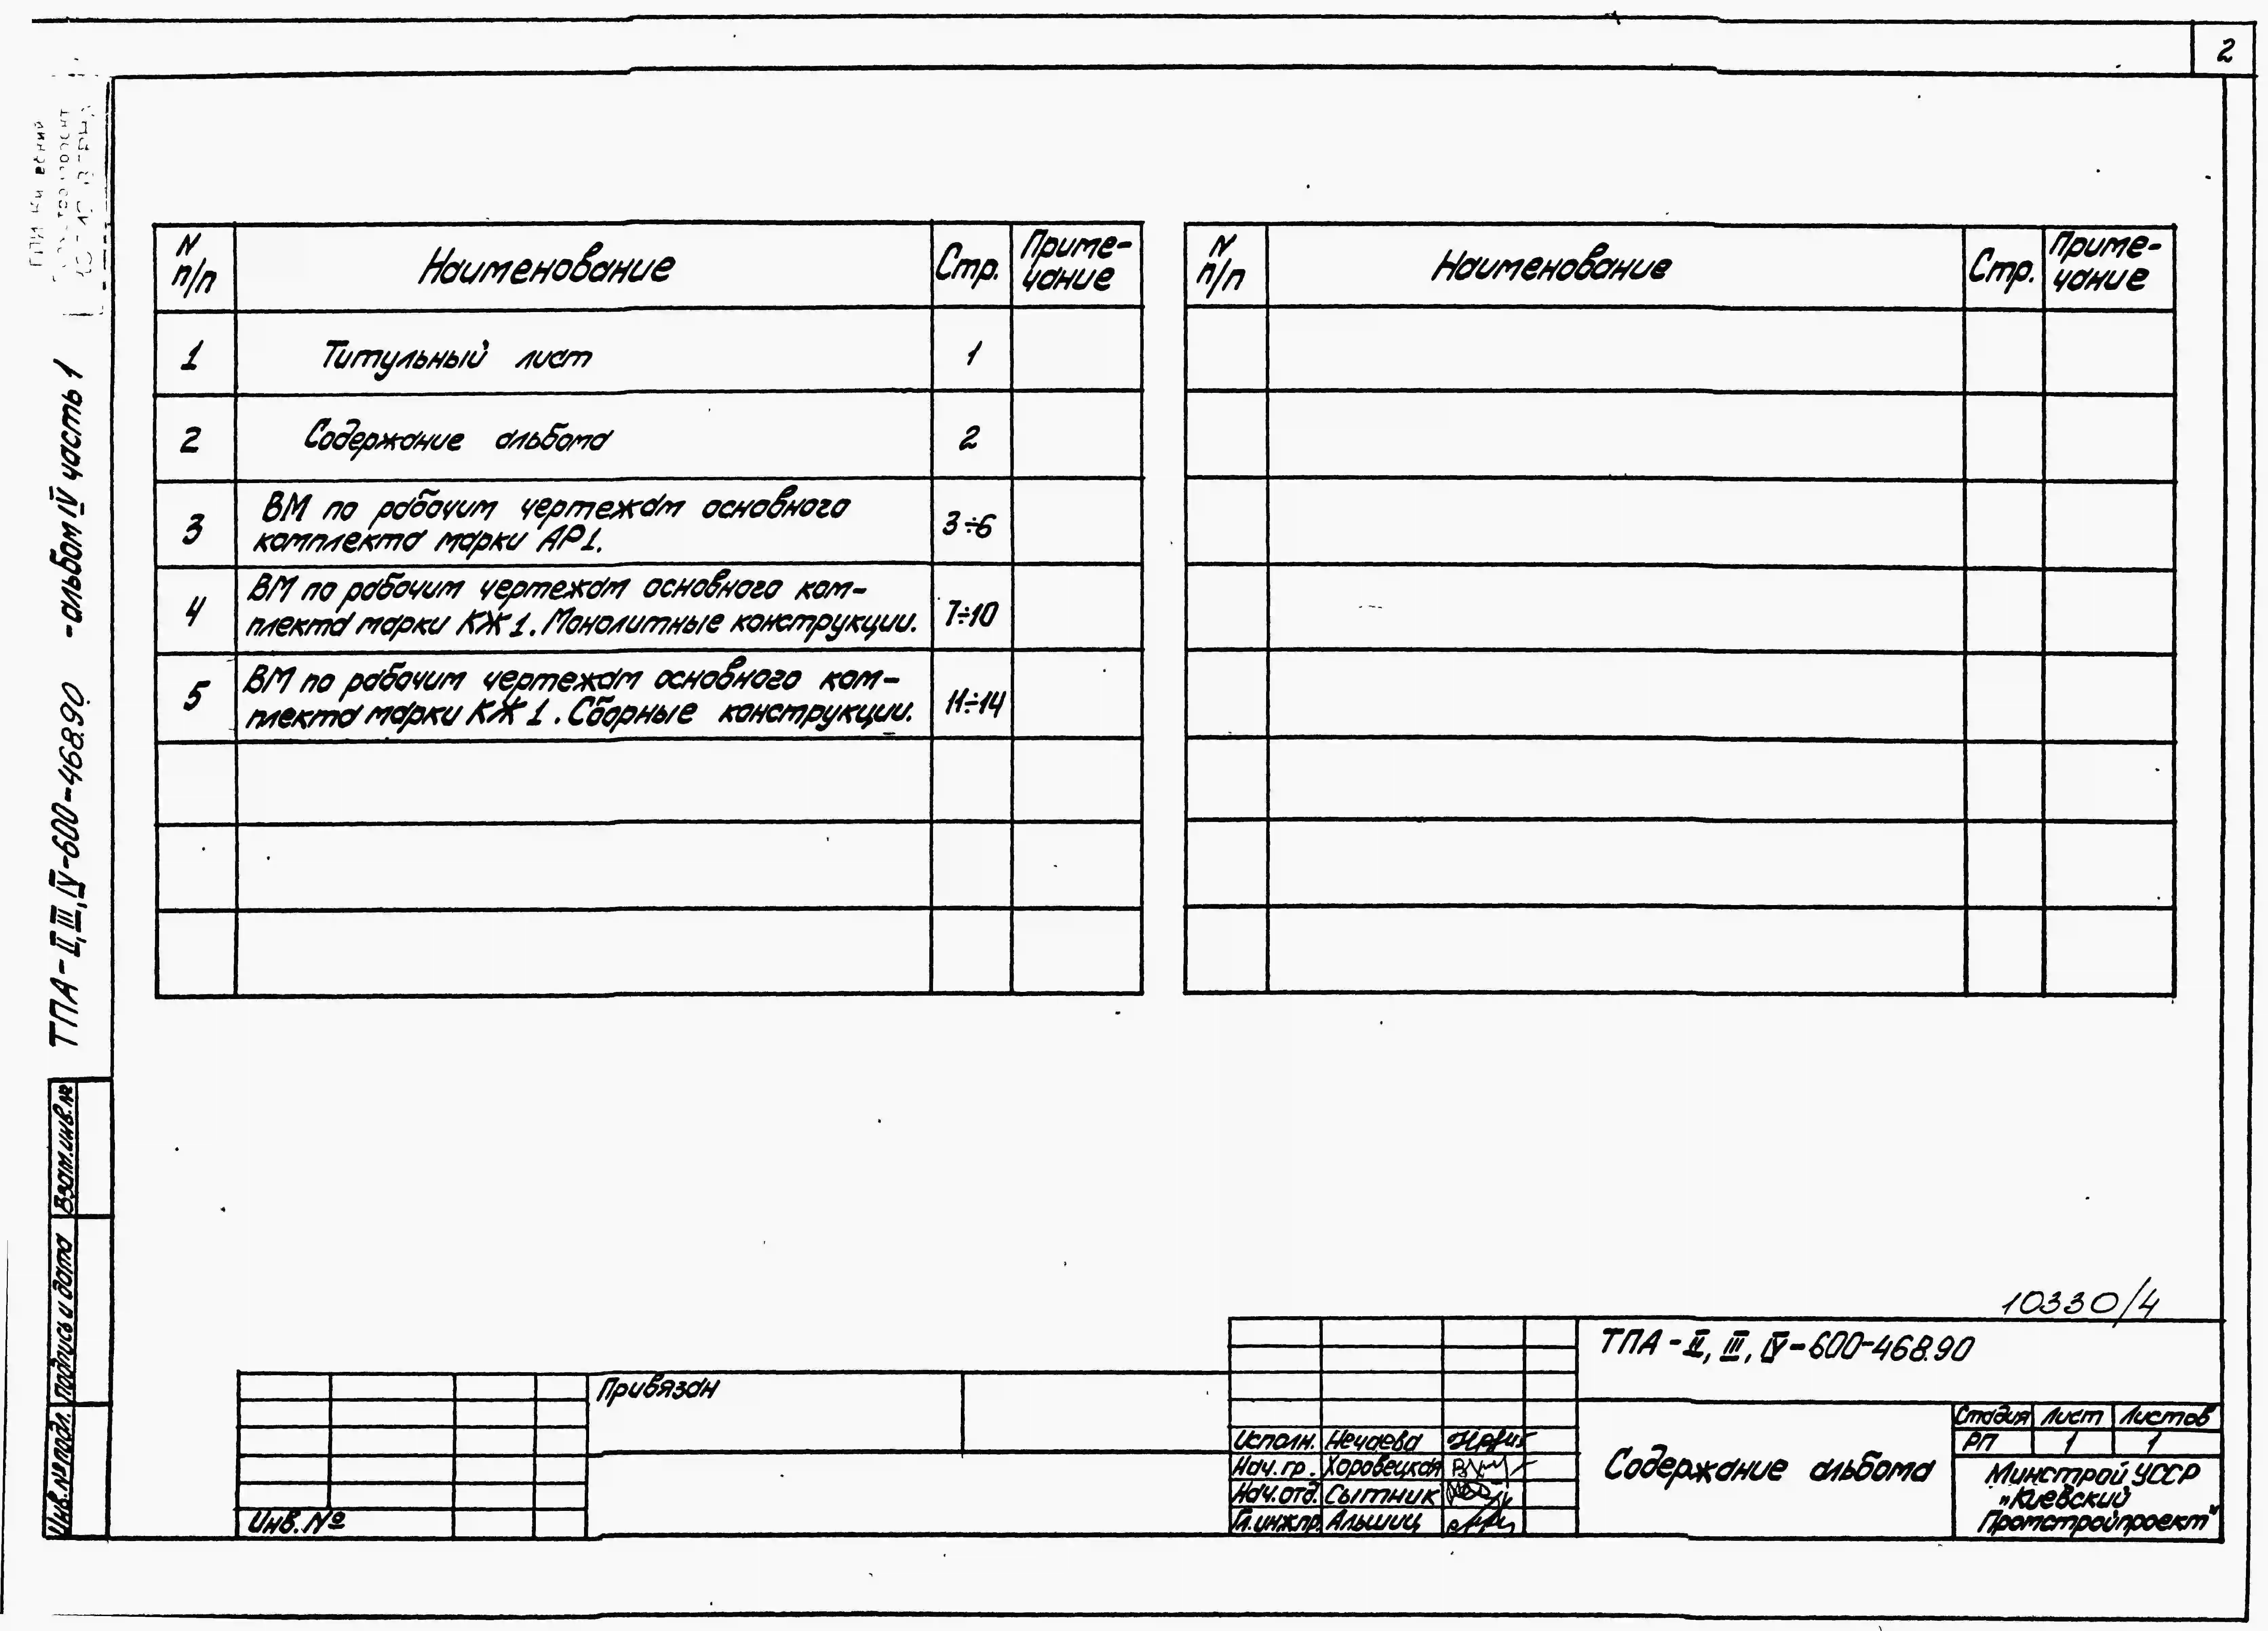 2
N п/п Наименование Стр. Приме-
чание
1 Титульный лист 1
2 Содержание альбома 2
3 ВМ по рабочим чертежам основного
комплекта марки АР1. 3÷6
4 ВМ по рабочим чертежам основного ком-
плекта марки КЖ1. Монолитные конструкции. 7÷10
5 ВМ по рабочим чертежам основного ком-
плекта марки КЖ1. Сборные конструкции. 11÷14
N п/п Наименование Стр. Приме-
чание
ТПА-II,III,IV-600-468.90 -альбом IV часть 1
Взам.инв.№
Подпись и дата
Инв.№подл.
10330/4
ТПА-II, III, IV-600-468.90
Привязан
Инв.№
Исполн. Нечаева
Нач.гр. Хоровецкая
Нач.отд. Сытник
Гл.инж.пр. Альшиц
Содержание альбома
Стадия Лист Листов
РП 1 1
Минстрой УССР
„Киевский
Промстройпроект"